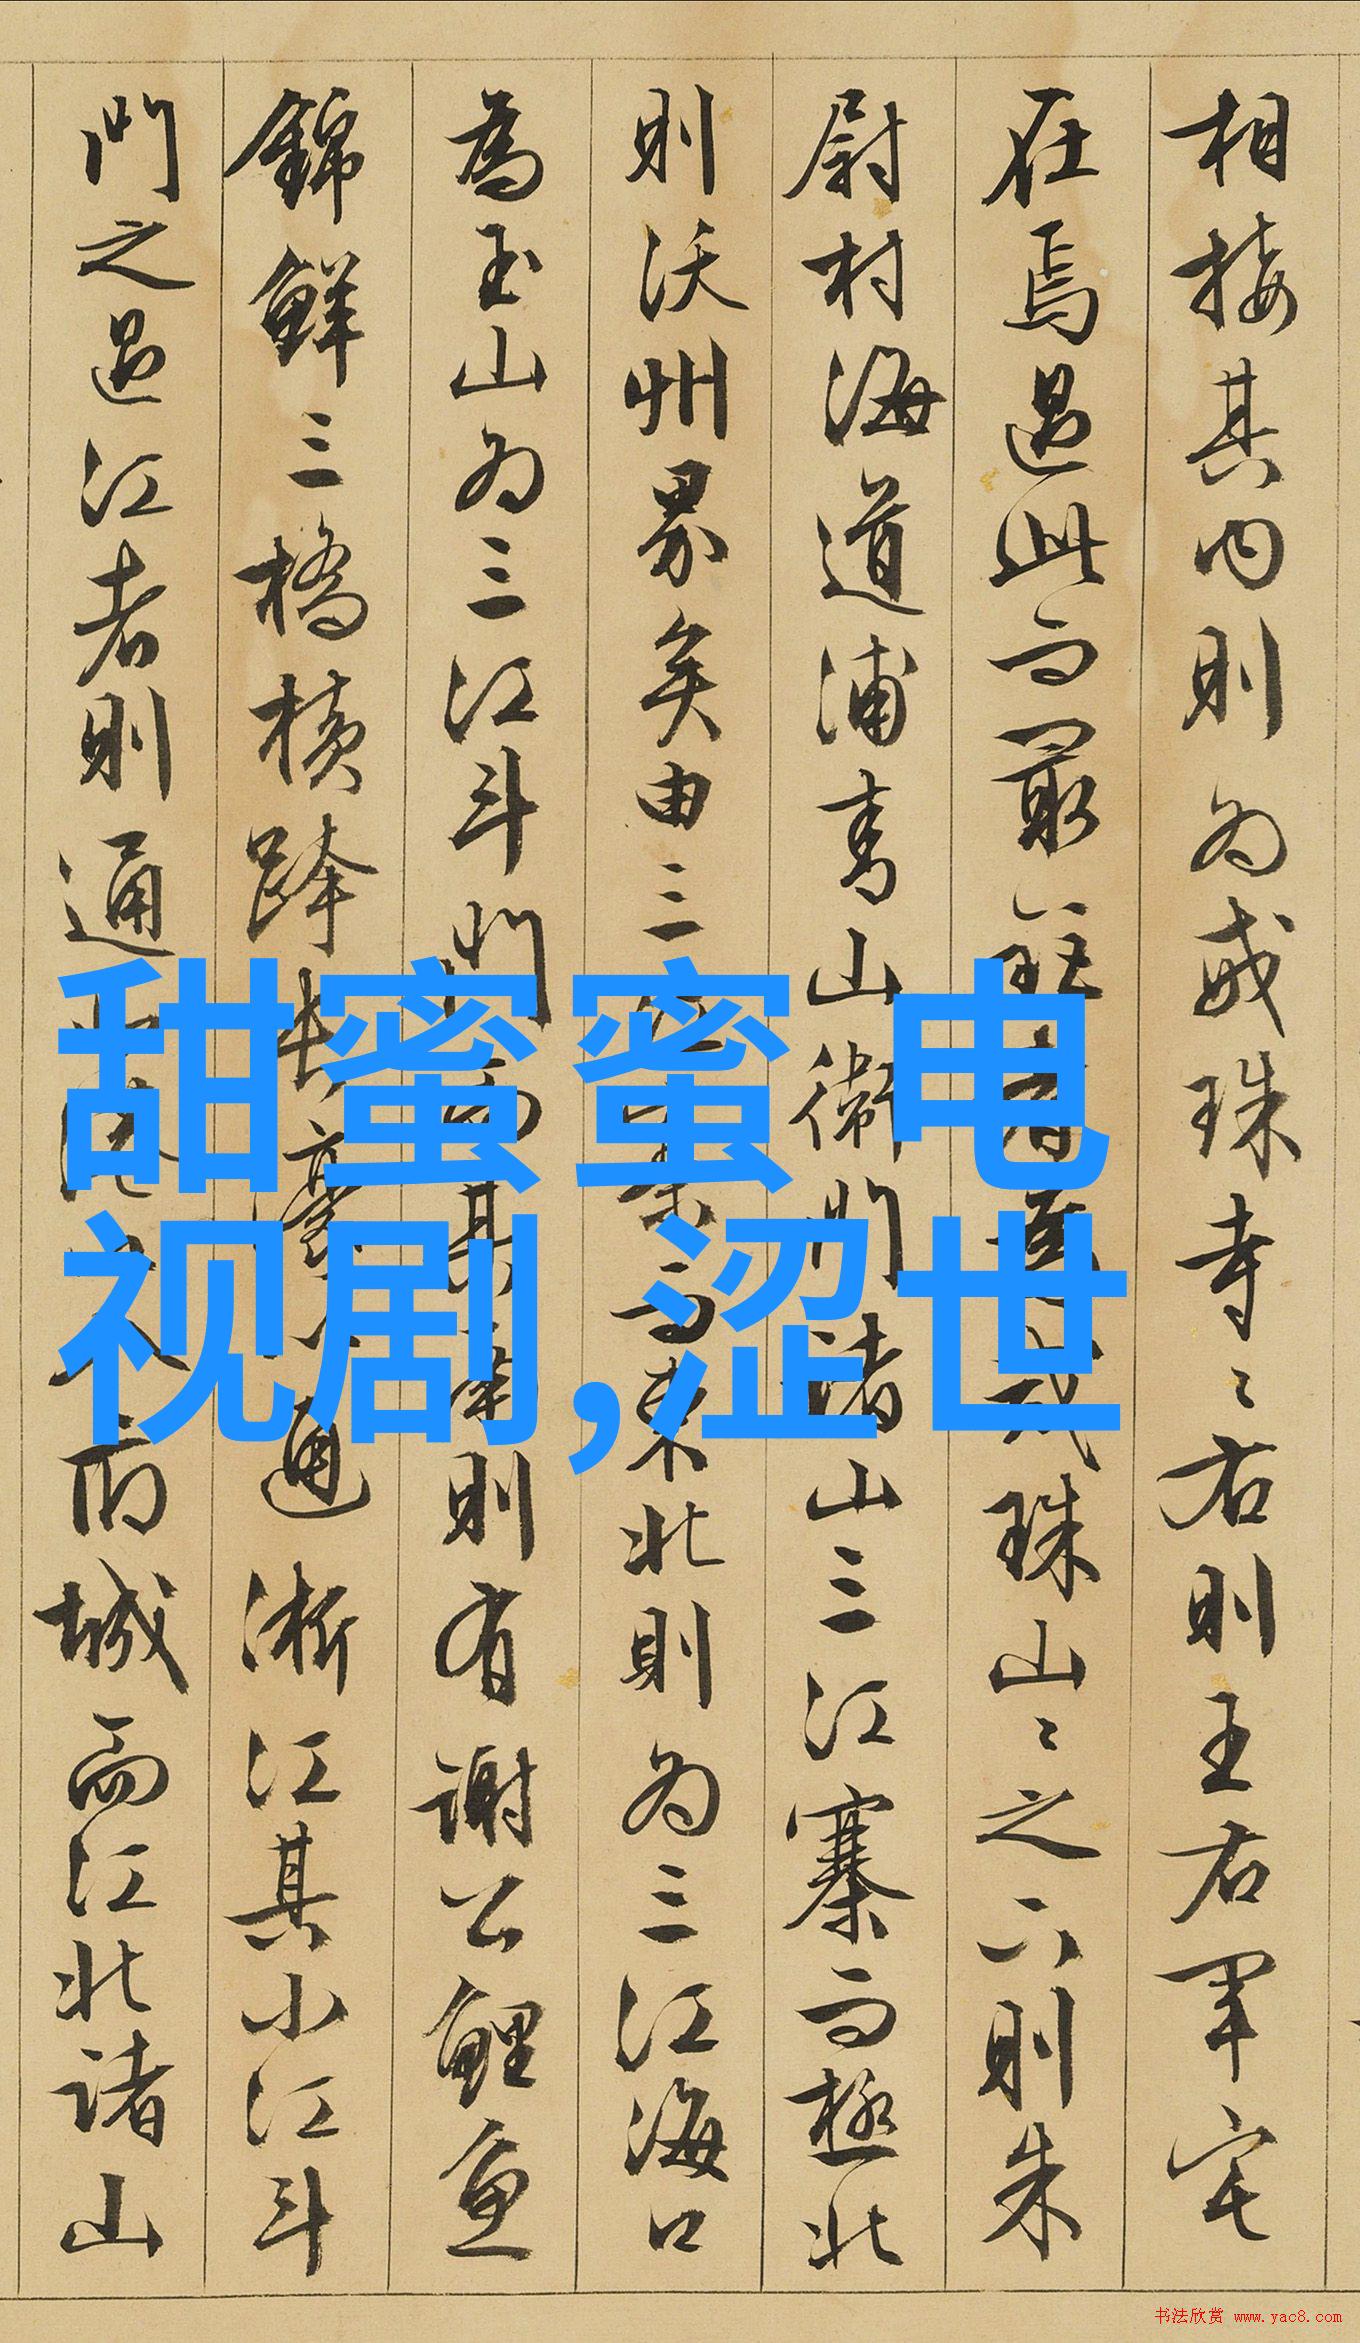 相接其内則为戒珠寺〻右則王右軍宅
在焉過此而最
珠山〻之六則朱
尉村海道浦青山衛
諸山三江寨而極北
則沃州界矣由三
而東北則为三江海口
為玉山为三江斗門
其南則有謝公鯉魚
錦鮮三橋橫跨
通浙江其小江斗
門之過江者則通
府城而江北諸山
甜蜜蜜 电
视剧,涩世
书法欣赏 www.yac8.com